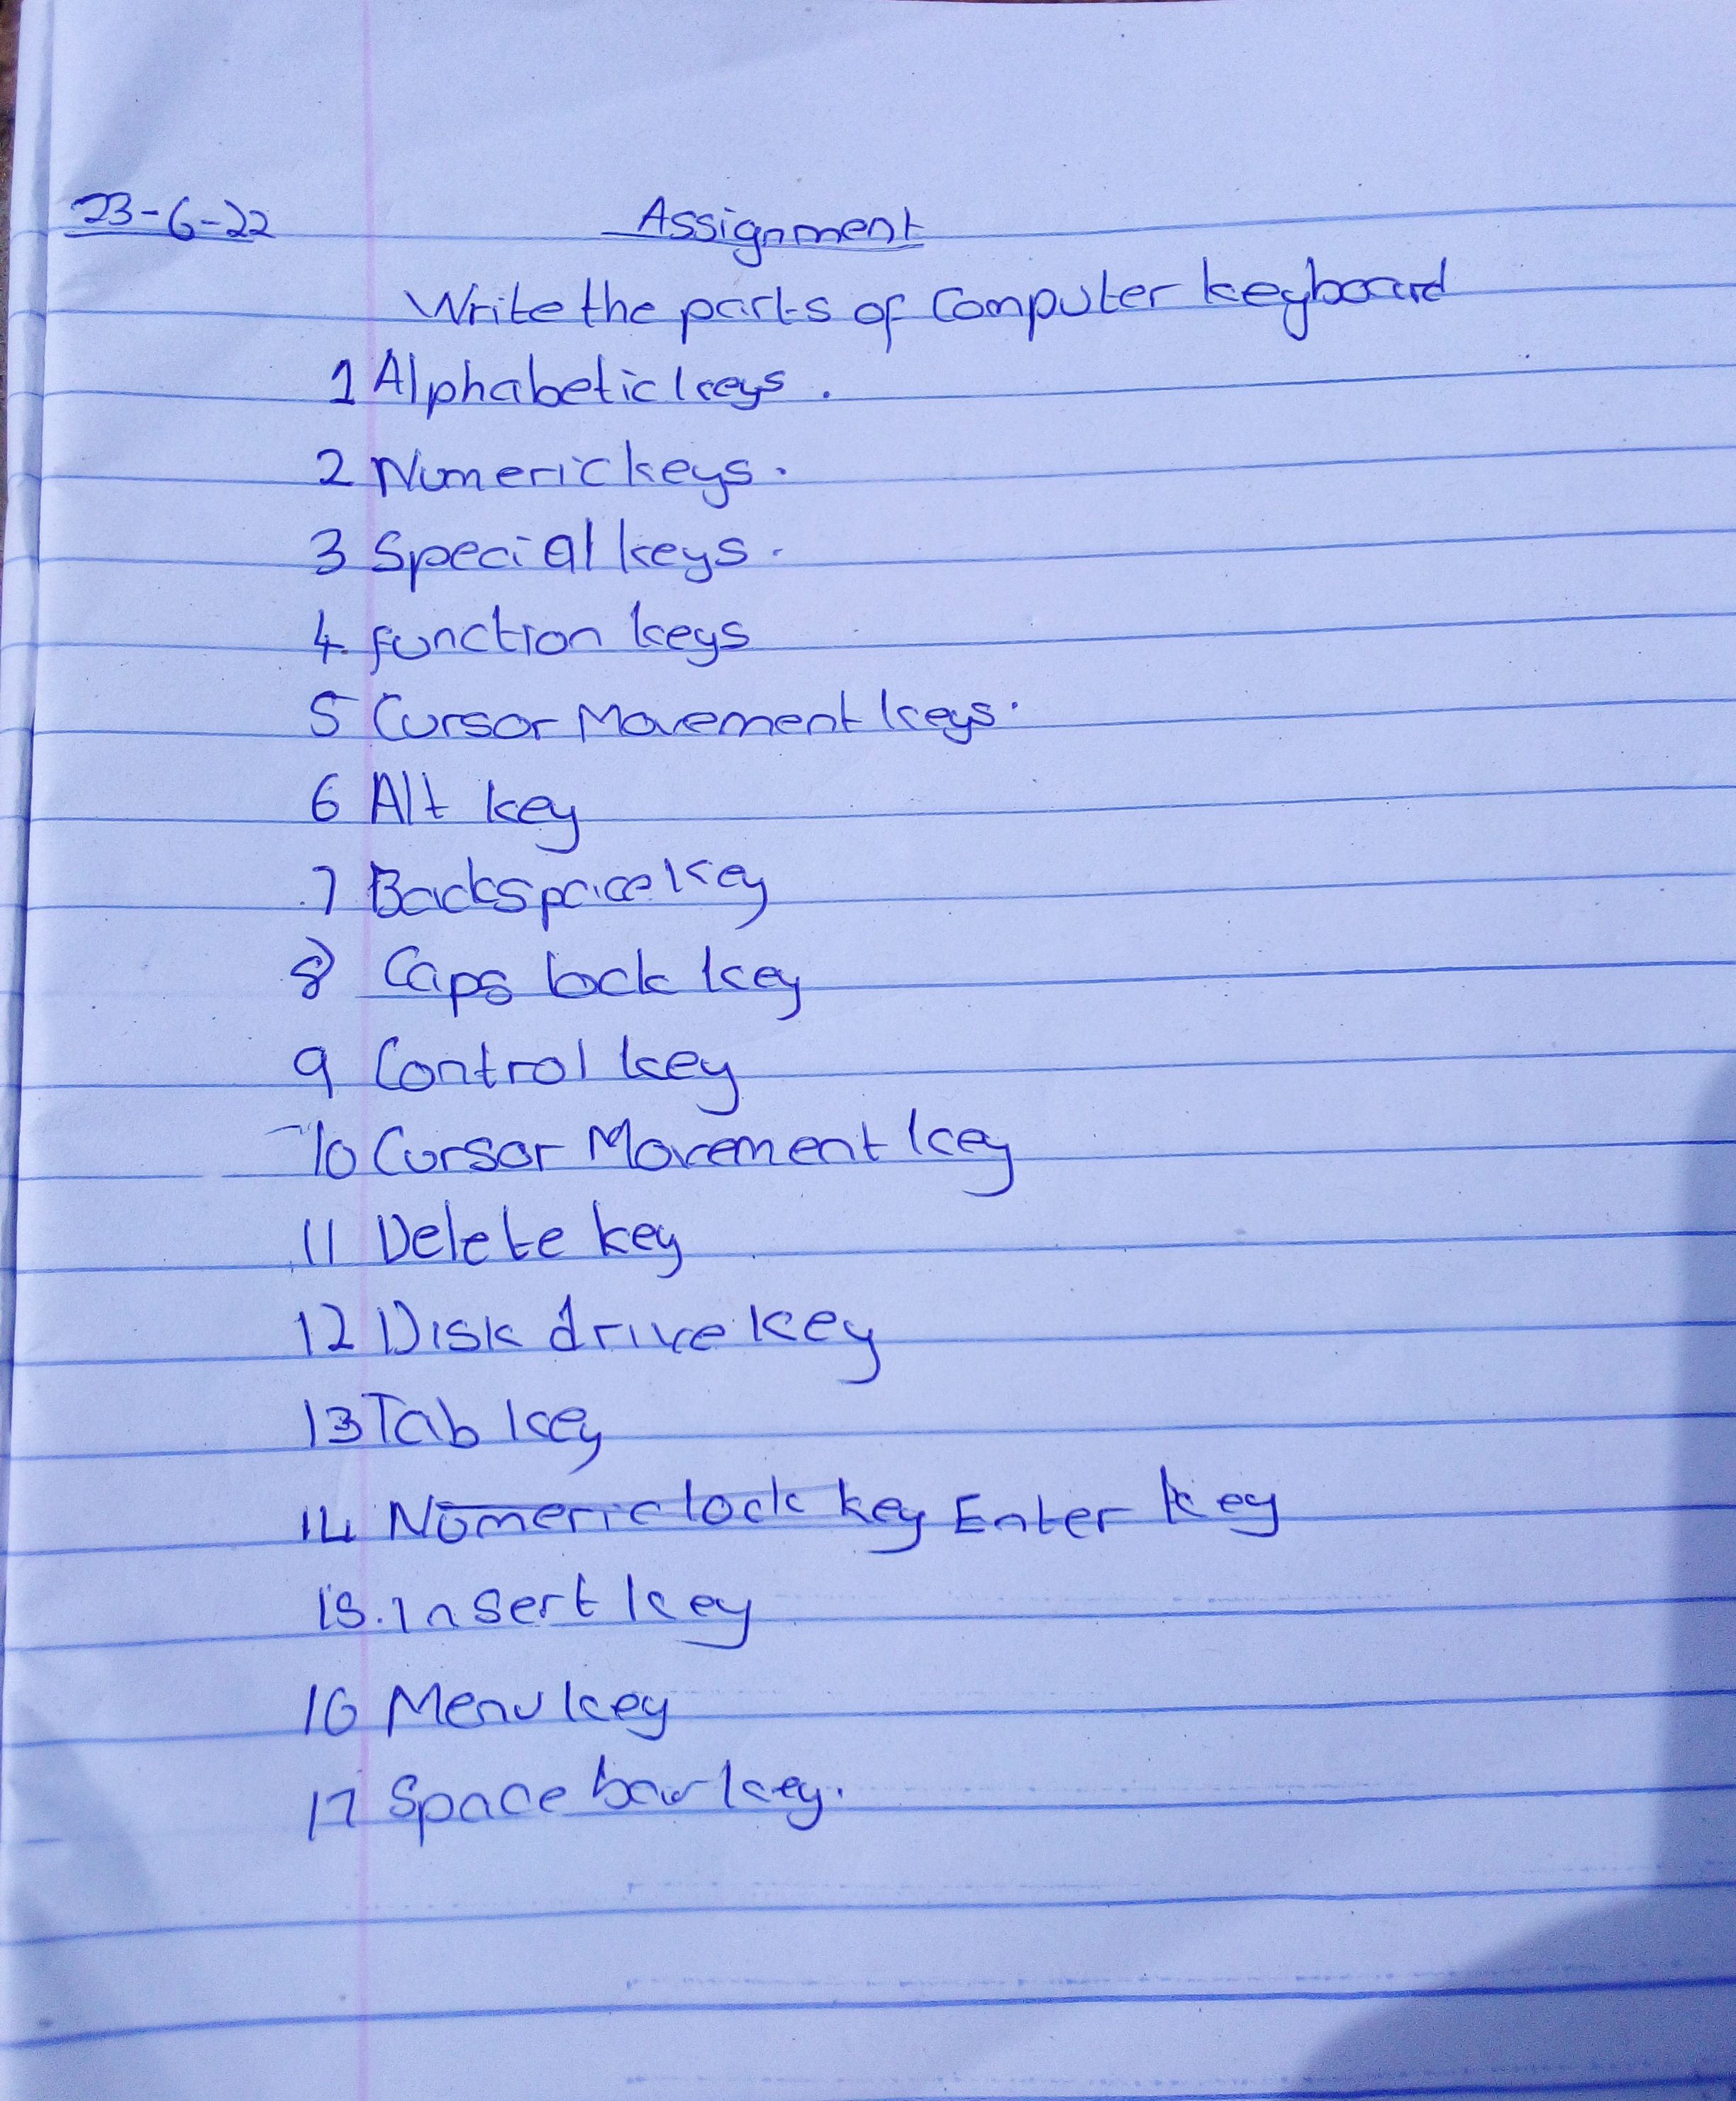 23-6-22 Assignment
Write the parts of Computer keyboard
1 Alphabetic keys.
2 Numeric keys.
3 Special keys.
4. function keys
5 Cursor Movement keys.
6 Alt key
7 Backspace key
8 Caps lock key
9 Control key
10 Cursor Movement key
11 Delete key
12 Disk drive key
13 Tab key
14 Numeric lock key Enter key
15. Insert key
16 Menu key
17 Space bar key.